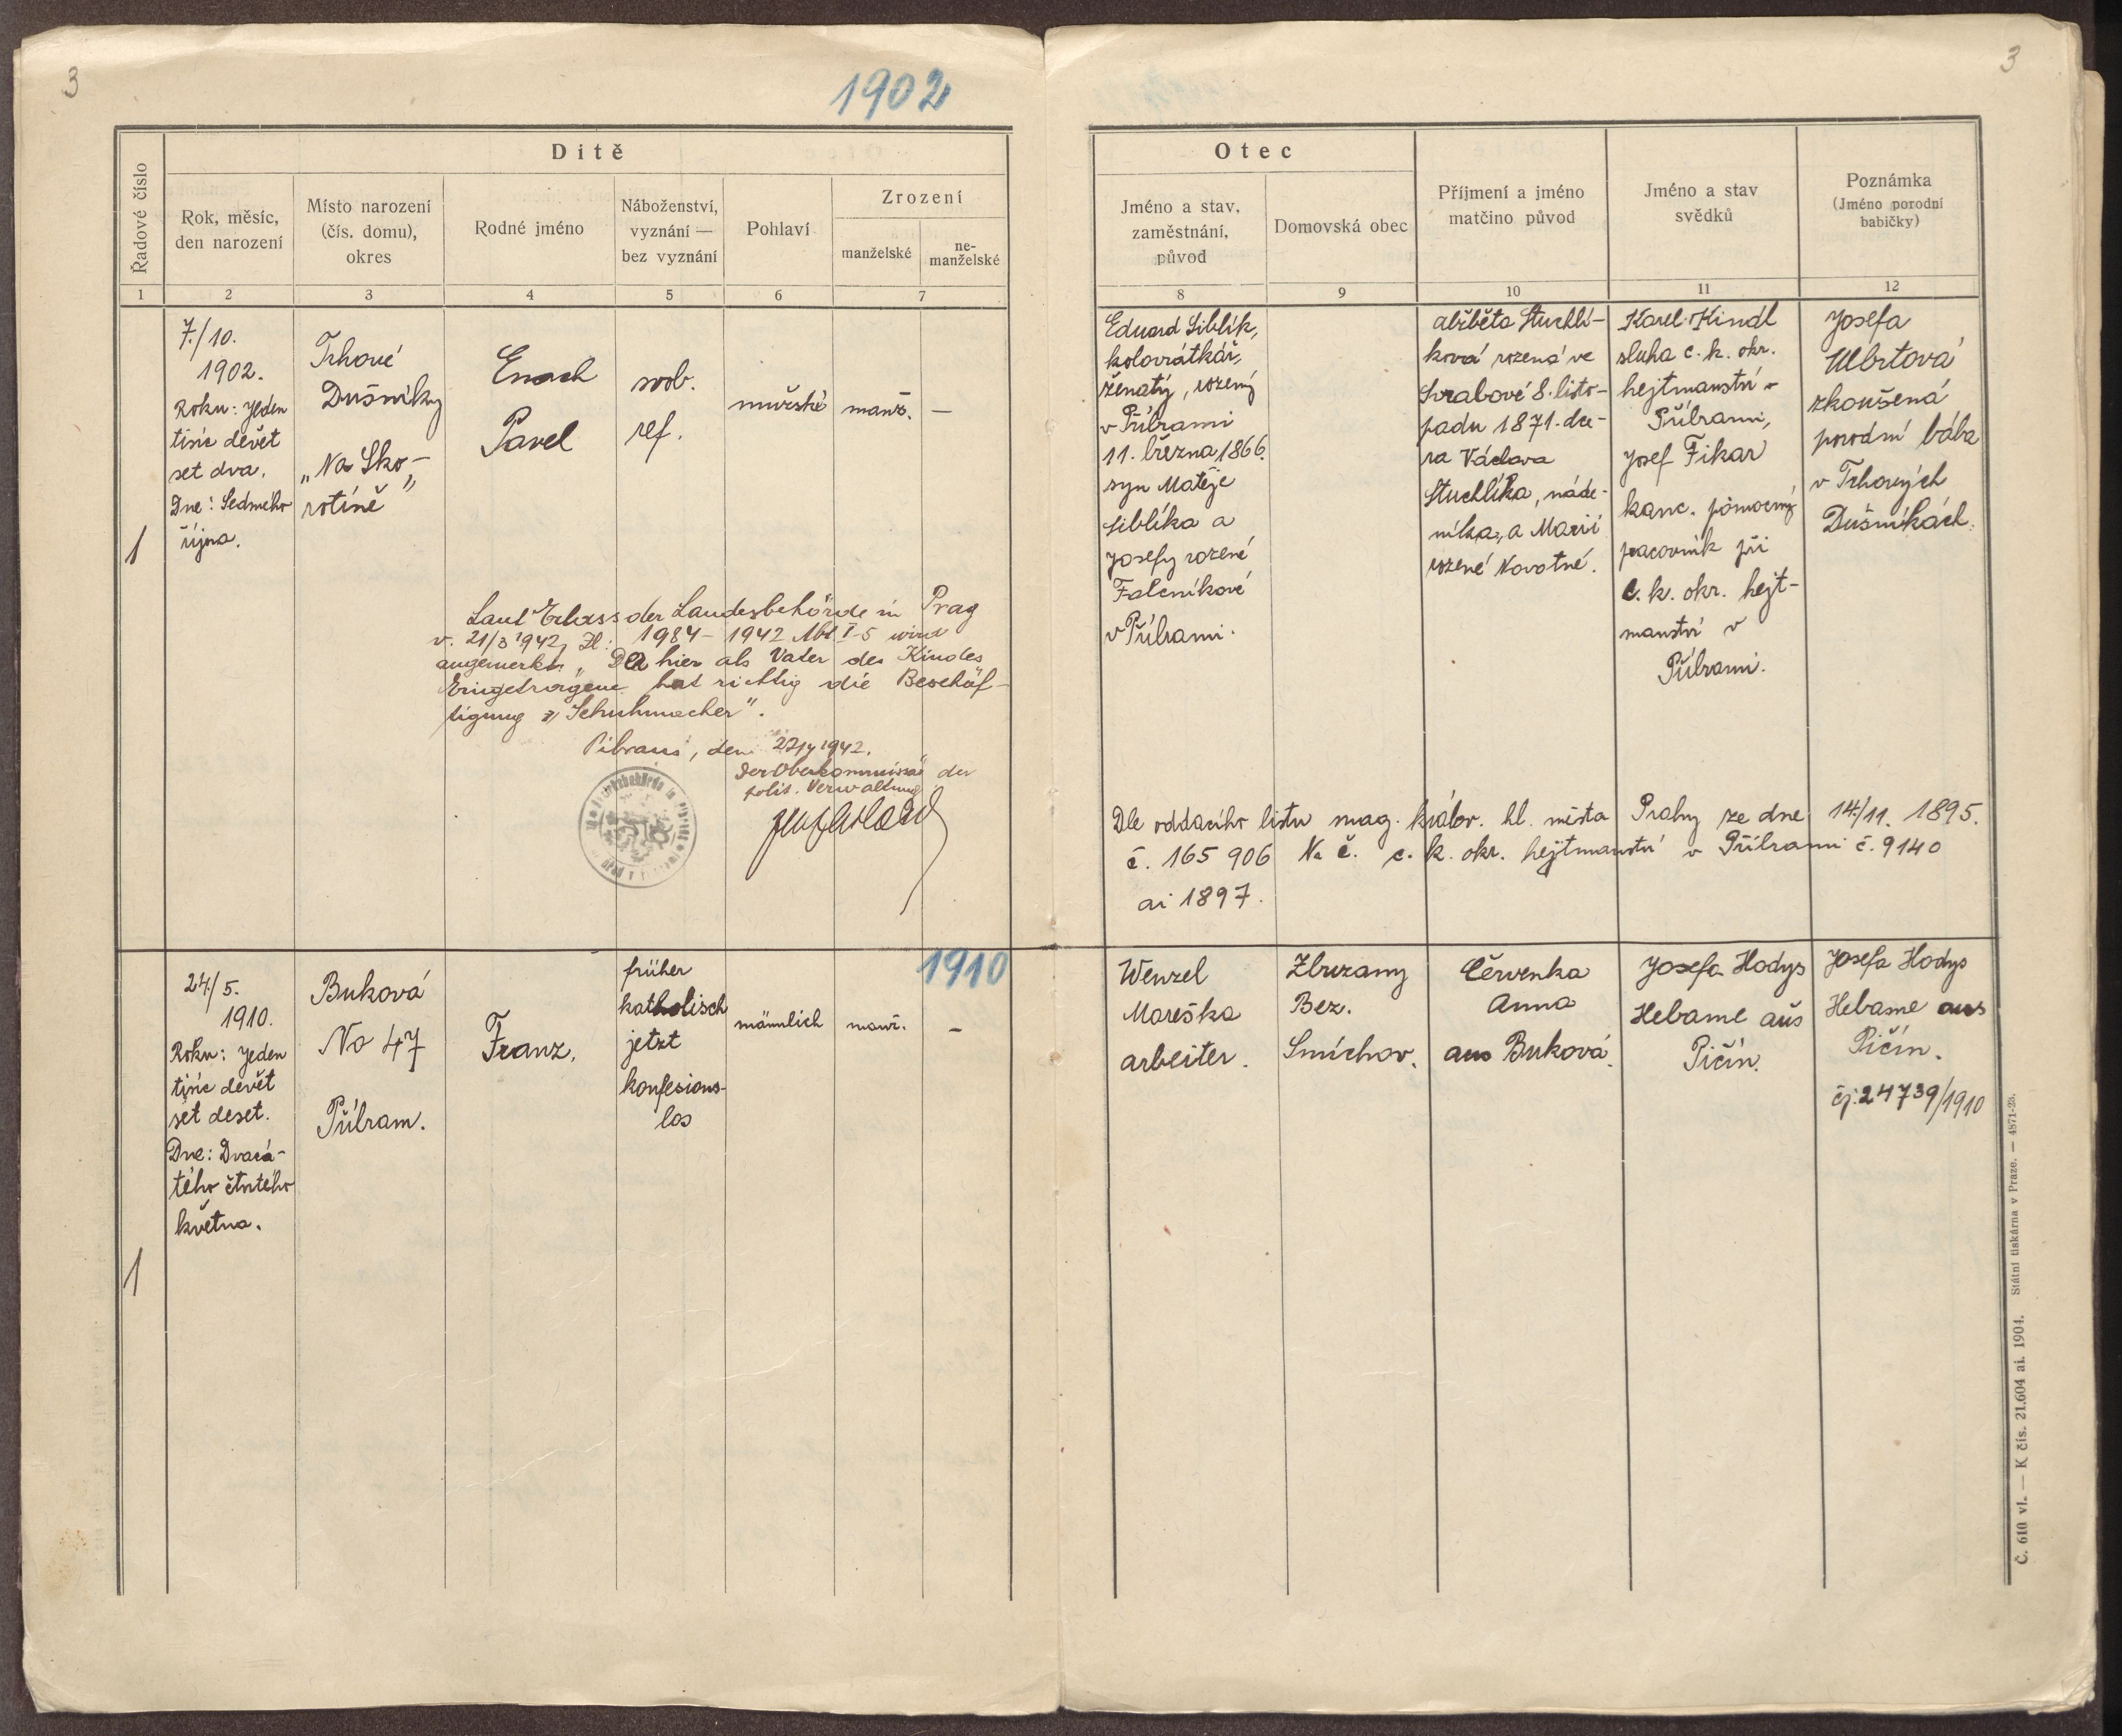 3
1902
Dítě
Řadové číslo
Rok, měsíc,
den narození
Místo narození
(čís. domu),
okres
Rodné jméno
Náboženství,
vyznání —
bez vyznání
Pohlaví
Zrození
manželské
ne-
manželské
1 2 3 4 5 6 7
7./10.
1902.
Roku: jeden
tisíc devět
set dva.
Dne: Sedmého
října.
1
Trhové
Dušníky
„Na Sko-
rotíně"
Enoch
Pavel
svob.
ref.
mužské
manž.
—
Laut Erlass der Landesbehörde in Prag
v. 21/3 1942, Zl: 1984-1942 Abt I-5 wird
angemerkt, „Der hier als Vater des Kindes
Eingetragene hat richtig die Beschäf-
tigung „Schuhmacher".
Pibrans, den 22/4 1942.
Der Oberkommissär der
polit. Verwaltung
1910
24./5.
1910.
Roku: jeden
tisíc devět
set deset.
Dne: Dvacá-
tého čtvrtého
května.
1
Buková
No 47
Příbram.
Franz.
früher
katholisch
jetzt
konfesions-
los
männlich
manž.
-
3
Otec
Jméno a stav,
zaměstnání,
původ
Domovská obec
Příjmení a jméno
matčino původ
Jméno a stav
svědků
Poznámka
(Jméno porodní
babičky)
8 9 10 11 12
Eduard Siblík,
kolovrátkář,
ženatý, rozený
v Příbrami
11. března 1866.
syn Matěje
Siblíka a
Josefy rozené
Falcníkové
v Příbrami.
Alžběta Stuchlí-
ková rozená ve
Svrabově 8. listo-
padu 1871. dce-
ra Václava
Stuchlíka, náde-
níka, a Marii
rozené Novotné.
Karel Kindl
sluha c. k. okr.
hejtmanství v
Příbrami,
Josef Fikar
kanc. pomocný
pracovník při
c. k. okr. hejt-
manství v
Příbrami.
Josefa
Ulbrtová
zkoušená
porodní bába
v Trhových
Dušníkách.
Dle oddacího listu mag. králov. hl. města Prahy ze dne 14./11. 1895.
č. 165 906 Na č. c. k. okr. hejtmanství v Příbrami č. 9140
ai 1897.
Wenzel
Mareška
arbeiter.
Zbuzany
Bez.
Smíchov.
Červenka
Anna
aus Buková.
Josefa Hodys
Hebame aus
Pičín.
Josefa Hodys
Hebame aus
Pičín.
čj: 24739/1910
Č. 610 vl. — K čís. 21.604 ai. 1904. Státní tiskárna v Praze. — 4871-28.